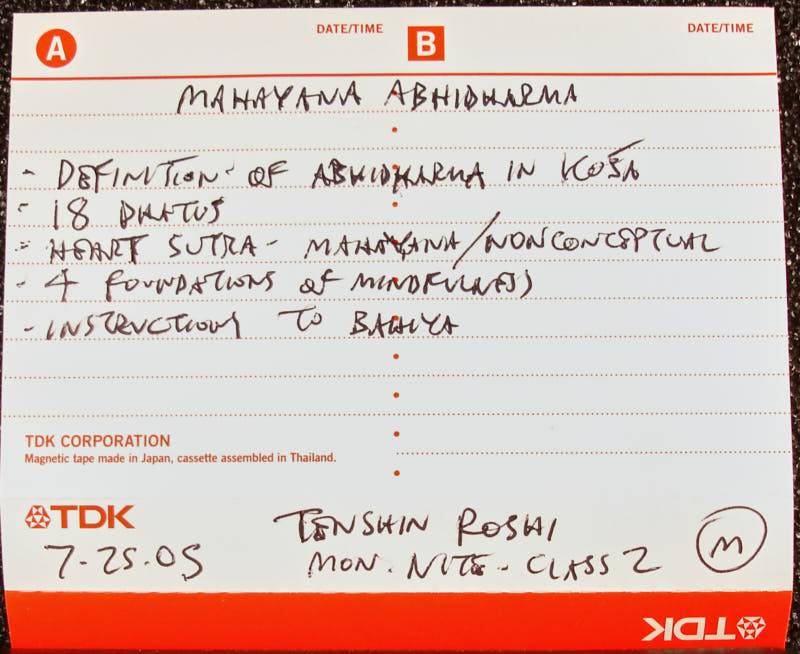 A DATE/TIME B DATE/TIME
MAHAYANA ABHIDHARMA
- DEFINITION OF ABHIDHARMA IN KOŚA
- 18 DHATUS
- HEART SUTRA - MAHAYANA/NONCONCEPTUAL
- 4 FOUNDATIONS OF MINDFULNESS
- INSTRUCTIONS TO BAHIYA
TDK CORPORATION
Magnetic tape made in Japan, cassette assembled in Thailand.
TDK
TENSHIN ROSHI
7-25-05 MON. NITE - CLASS 2 M
TDK